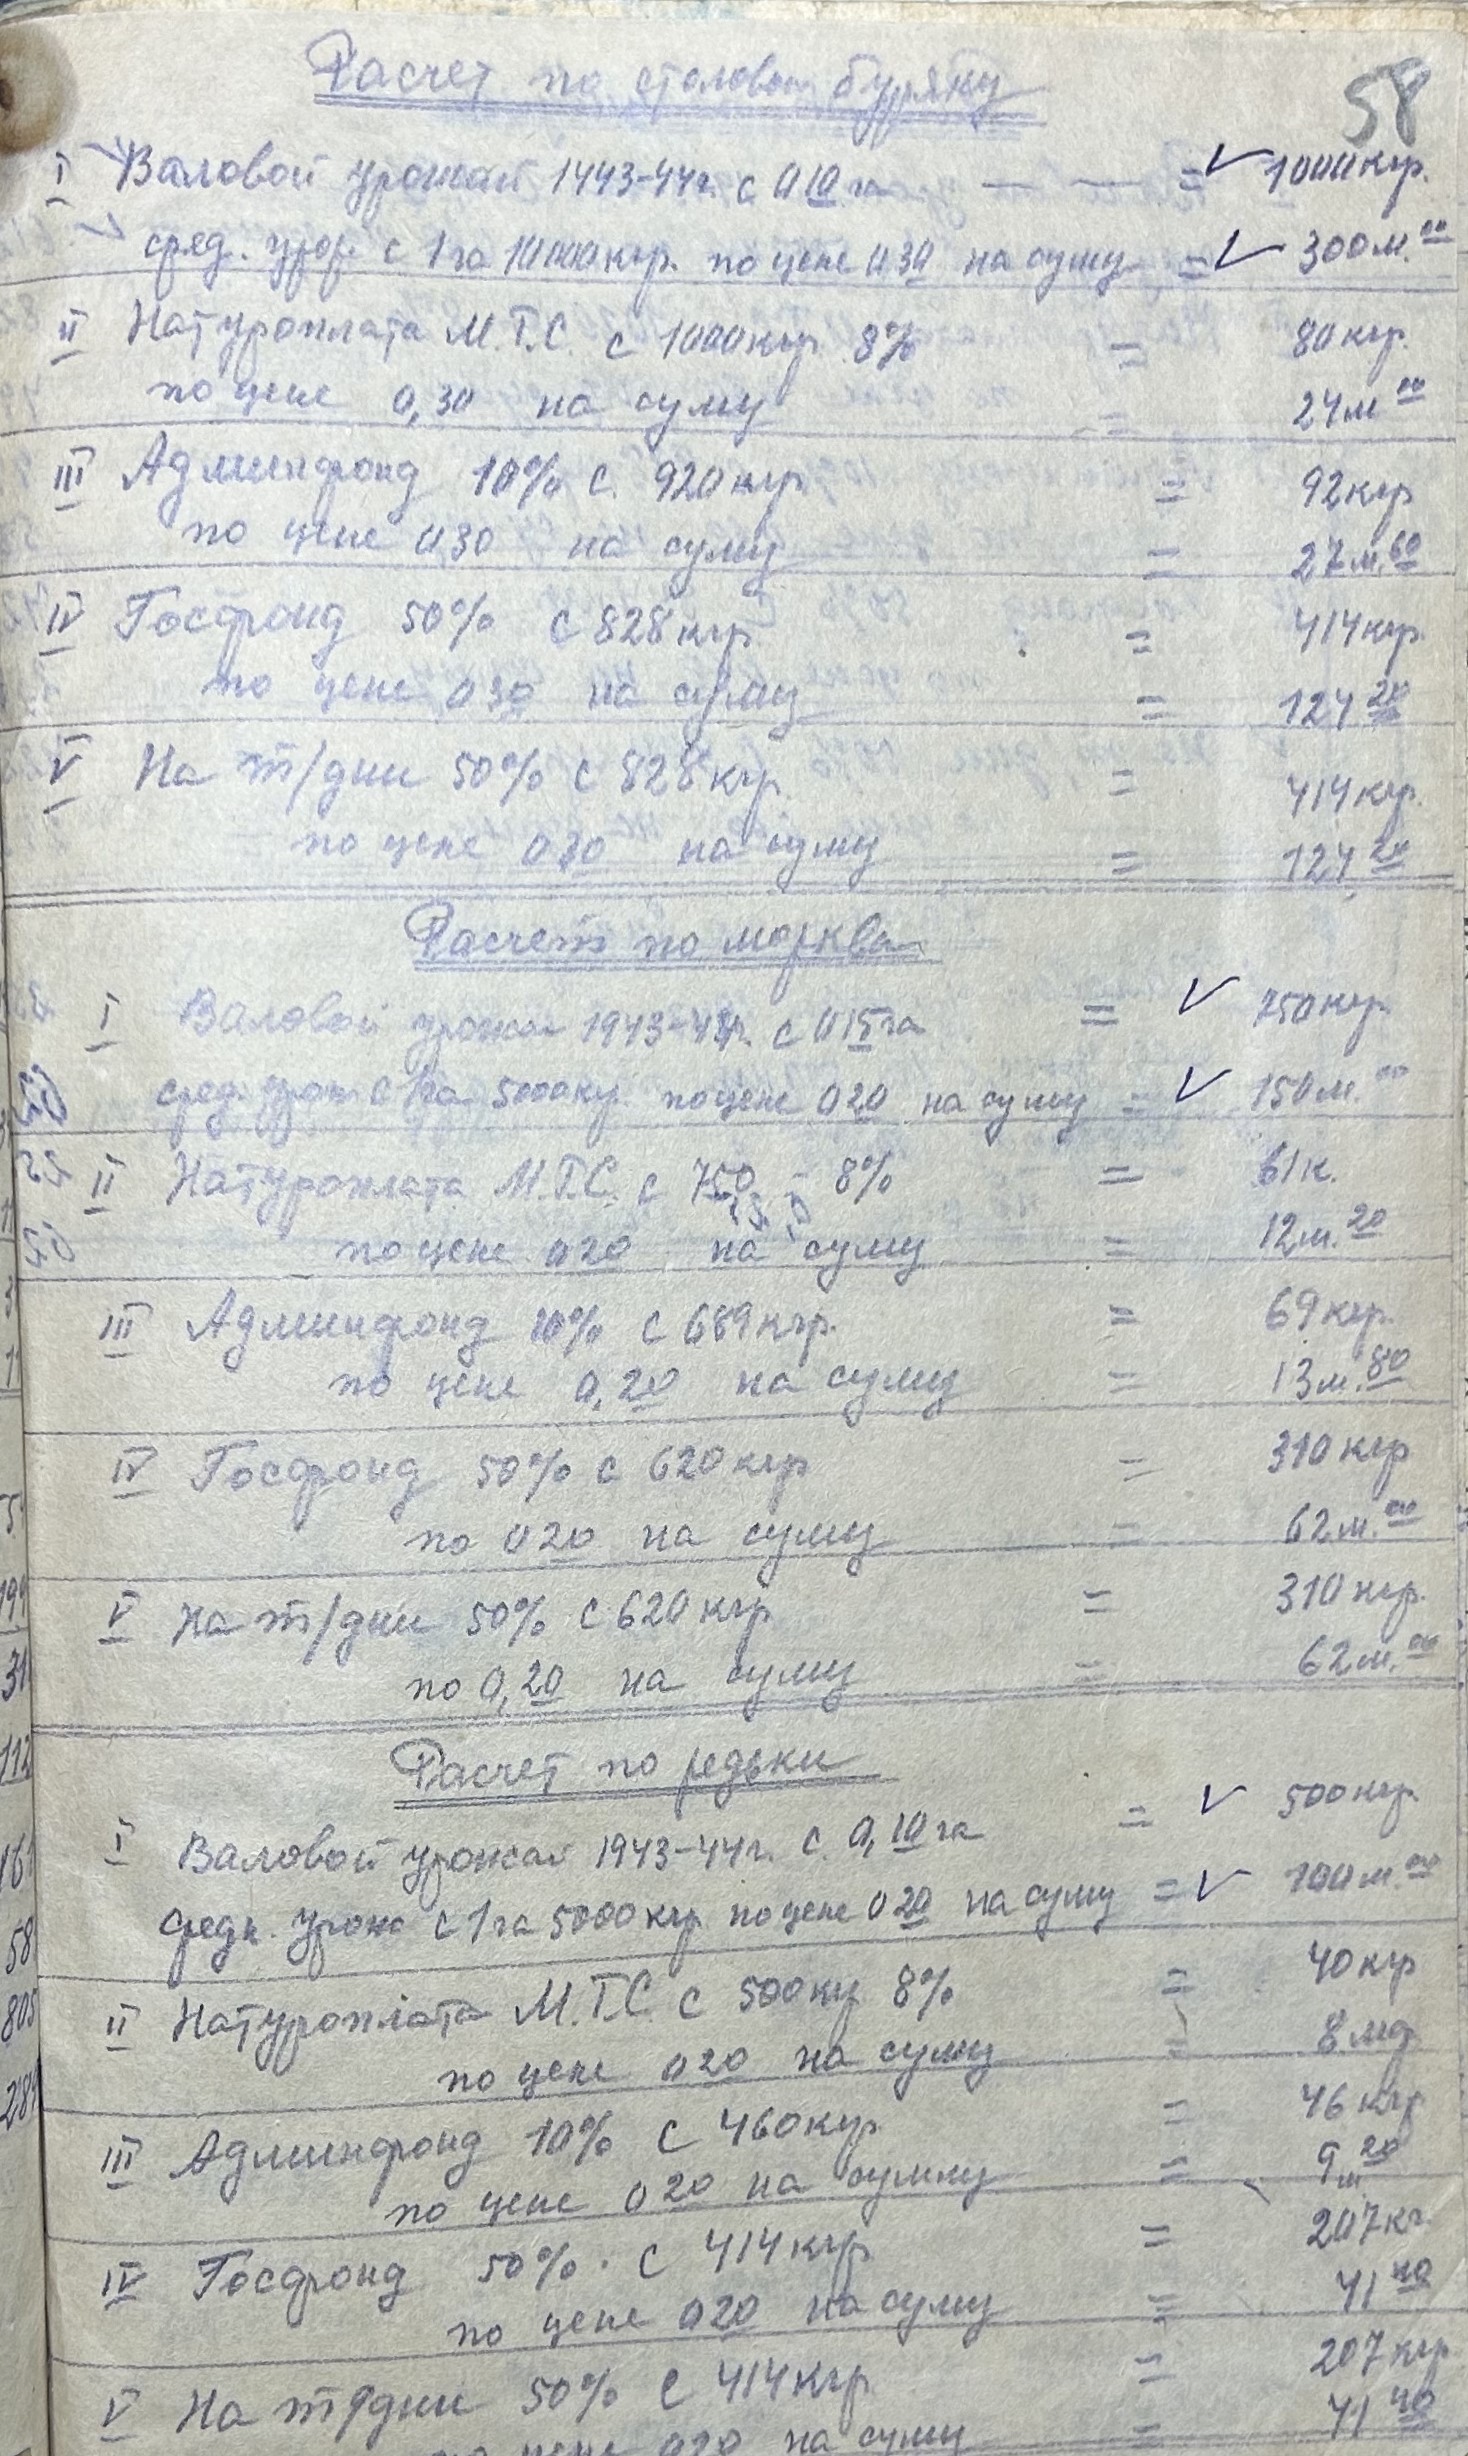 58
Расчет по столовом буряку
I Валовой урожай 1443-44г. с 0 10 га — — = ✓ 1000 кгр.
сред. урож. с 1 га 10000 кгр. по цене 0 30 на суму = ✓ 300 м. 00
II Натуроплата М.Т.С. с 1000 кгр 8% = 80 кгр.
по цене 0,30 на суму = 24 м 00
III Админфонд 10% с 920 кгр = 92 кгр
по цене 0 30 на суму = 27 м. 60
IV Госфонд 50% с 828 кгр = 414 кгр
по цене 0 30 на суму = 124 20
V На т/дни 50% с 828 кгр = 414 кгр.
по цене 0 30 на суму = 124 20
Расчет по моркве
I Валовой урожай 1943-44г. с 0 15 га = ✓ 750 кгр
сред. урож с 1 га 5000 кг. по цене 0 20 на суму = ✓ 150 м. 00
II Натуроплата М.Т.С. с 750 - 8% = 61 к.
по цене 0 20 на суму = 12 м. 20
III Админфонд 10% с 689 кгр. = 69 кгр.
по цене 0,20 на суму = 13 м. 80
IV Госфонд 50% с 620 кгр = 310 кгр
по 0 20 на суму = 62 м. 00
V На т/дни 50% с 620 кгр = 310 кгр.
по 0,20 на суму = 62 м. 00
Расчет по редьки
I Валовой урожай 1943-44г. с. 0,10 га = ✓ 500 кгр.
средн. урож с 1 га 5000 кгр по цене 0 20 на суму = ✓ 100 м. 00
II Натуроплата М.Т.С. с 500 кг 8% = 40 кгр
по цене 0 20 на суму = 8 мар
III Админфонд 10% с 460 кгр = 46 кгр
по цене 0 20 на сумму = 9 м 20
IV Госфонд 50% с 414 кгр = 207 кг.
по цене 0 20 на суму = 41 40
V На т/дни 50% с 414 кгр = 207 кгр
по цене 0 20 на суму = 41 40